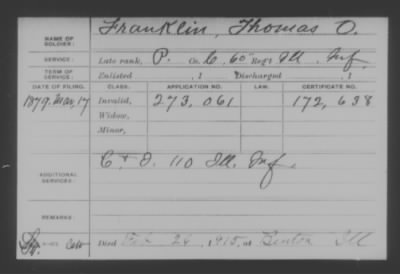 NAME OF SOLDIER: Franklin, Thomas O.
SERVICE: Late rank, P. Co. C, 60" Reg't Ill. Inf.
TERM OF SERVICE: Enlisted , 1 Discharged , 1
DATE OF FILING. CLASS. APPLICATION NO. LAW. CERTIFICATE NO.
1879. Mar, 17 Invalid, 273,061 172,638
Widow,
Minor,
ADDITIONAL SERVICES: C + D. 110 Ill. Inf.
REMARKS:
Died Feb 26, 1915, at Benton Ill